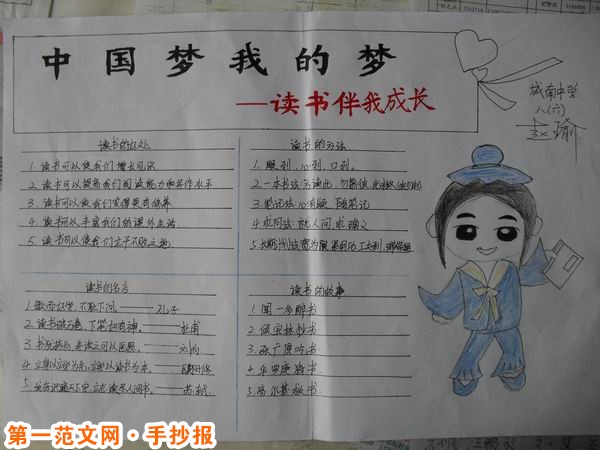 中国梦我的梦
——读书伴我成长
城南中学
八(六)
读书的好处
1. 读书可以使我们增长见识。
2. 读书可以提高我们阅读能力和写作水平
3. 读书可以使我们变得更有修养
4. 读书可以丰富我们的课外生活
5. 读书可以使我们立于不败之地
读书的方法
1. 眼到、心到、口到。
2. 一本书法:方读此,勿慕彼,此未终,彼勿起
3. 笔记法:心有疑 随笔记
4. 求问法 就人问 求确义
5. 长期计划法 宽为限 紧用功 工夫到 滞塞通
读书的名言
1. 敏而好学,不耻下问。——孔子
2. 读书破万卷,下笔如有神。——杜甫
3. 书犹药也,善读之可以医愚。——刘向
4. 立身以立学为先,立学以读书为本。——欧阳修
5. 发奋识遍天下字,立志读尽人间书。——苏轼
读书的故事
1. 闻一多醉书
2. 侯宝林抄书
3. 张广厚吃书
4. 华罗庚猜书
5. 高尔基救书
第一范文网·手抄报